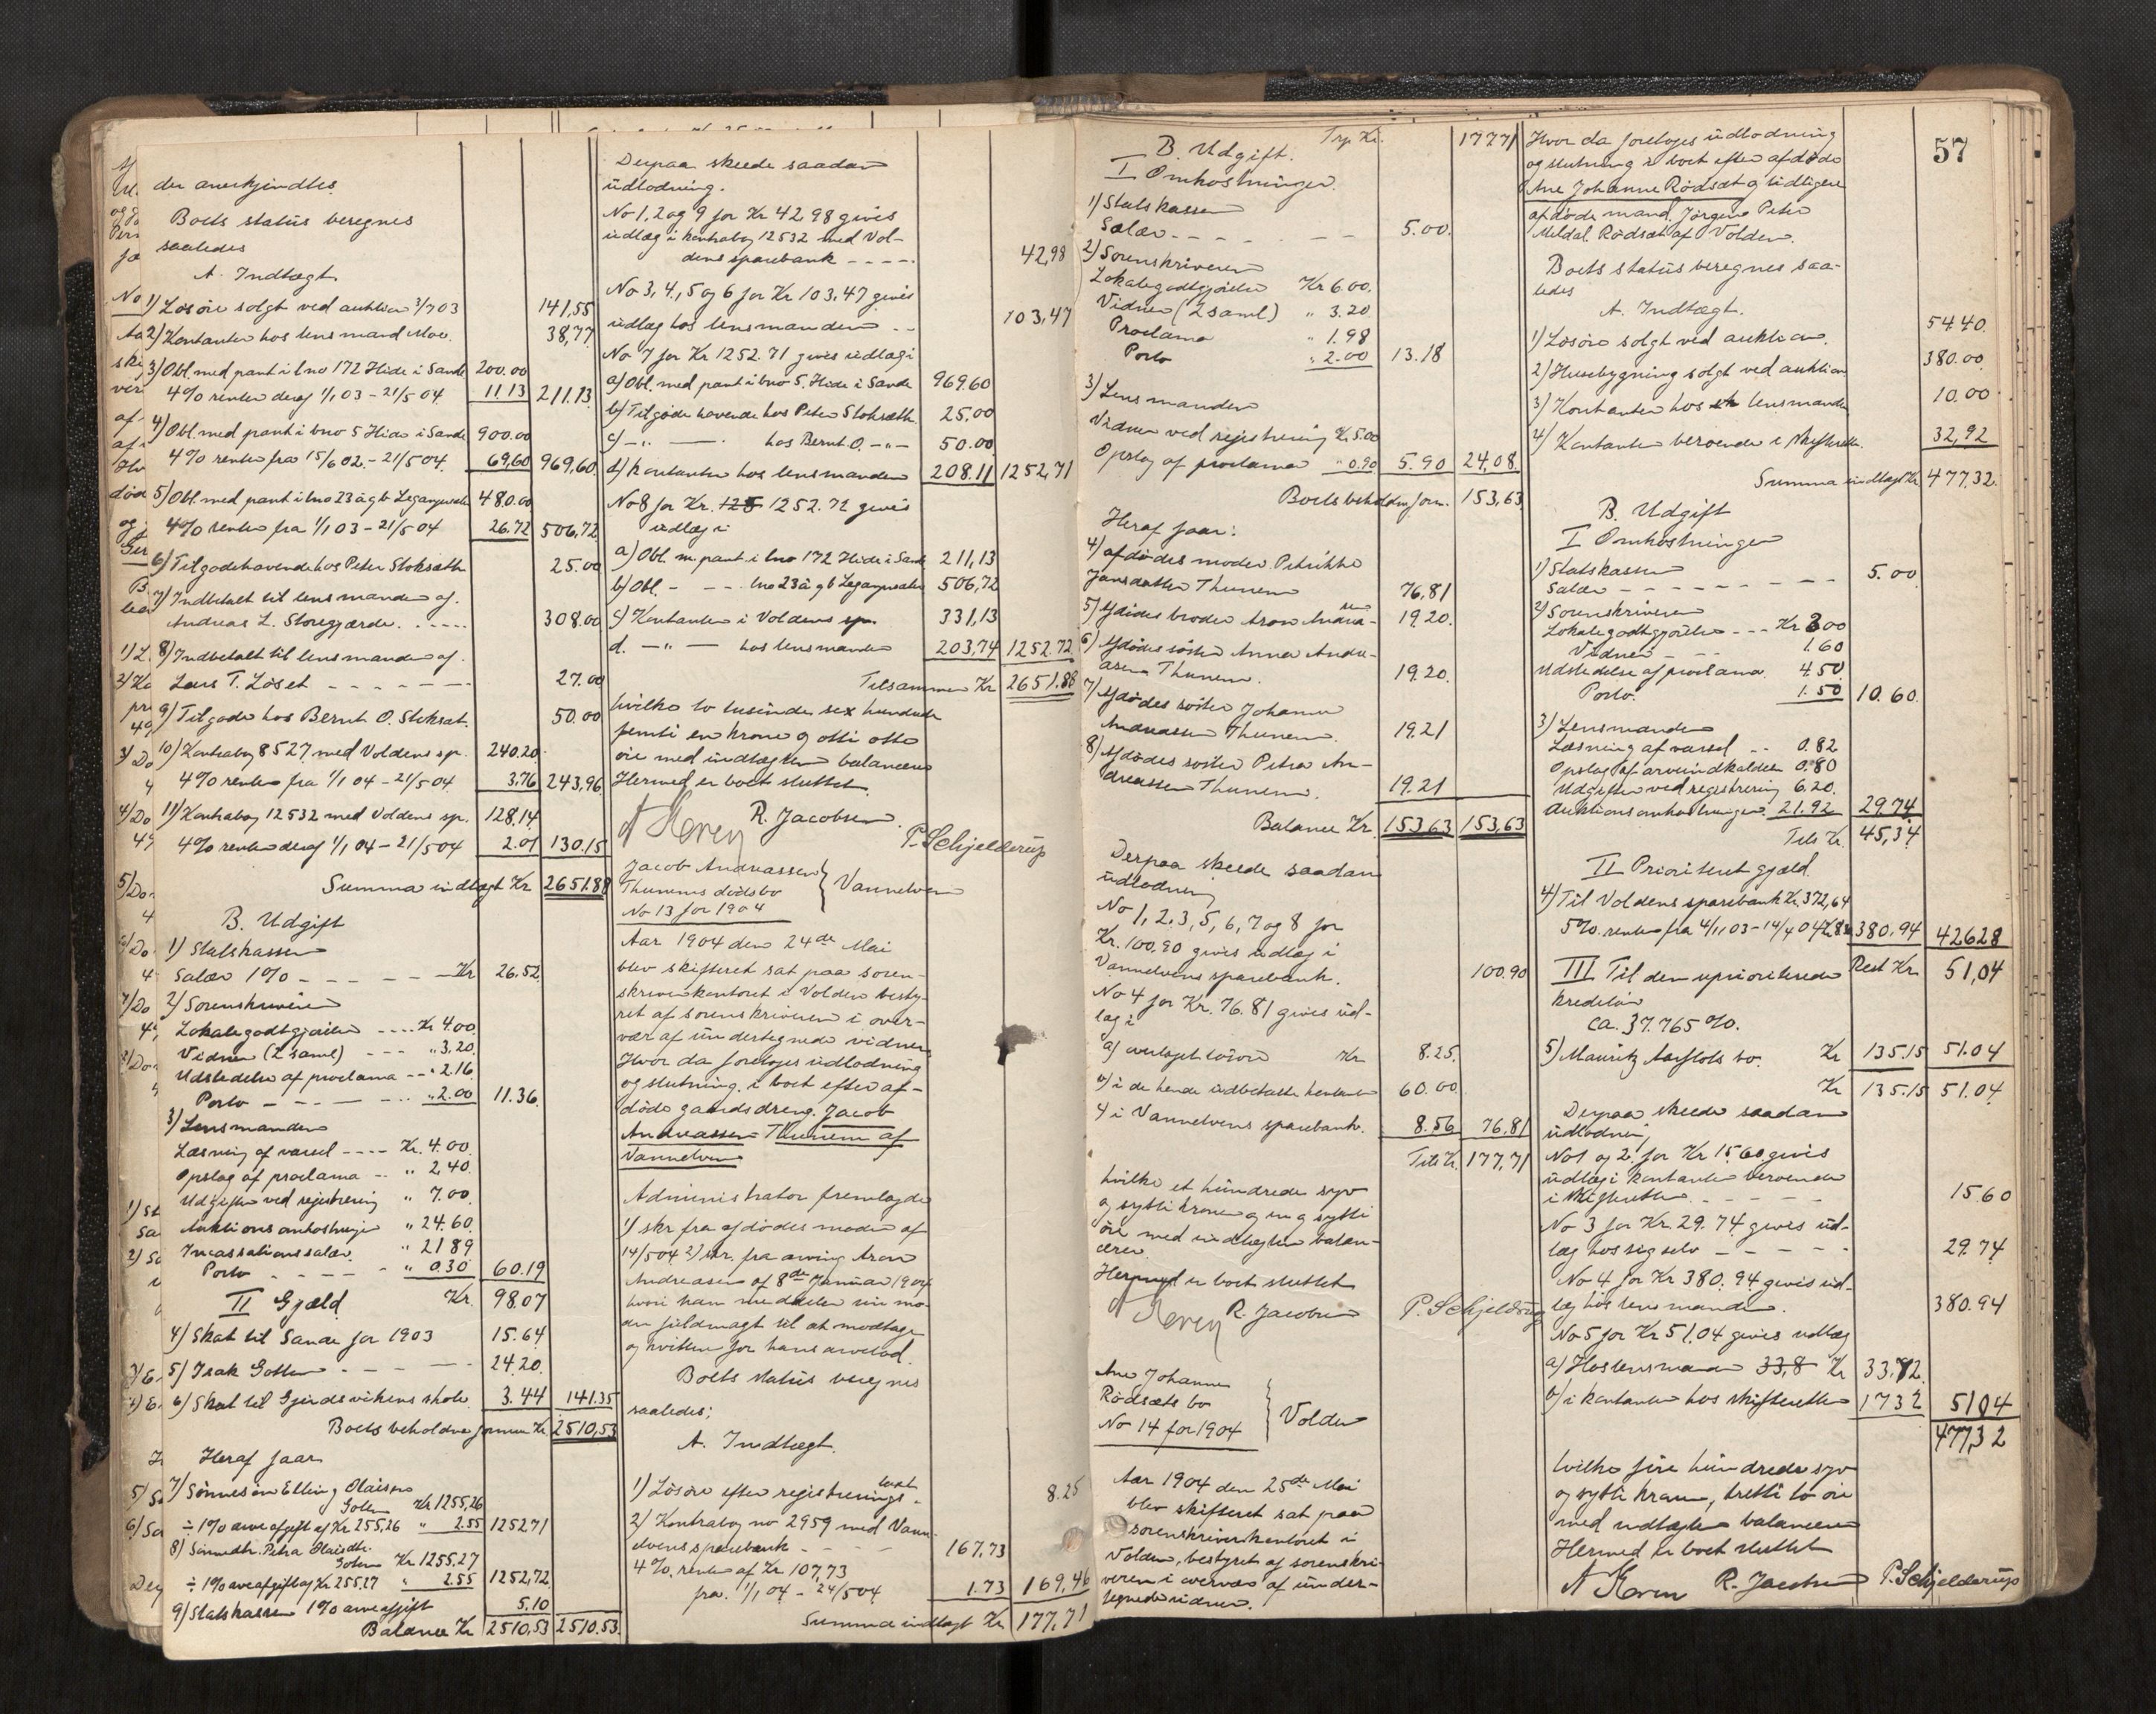 der anerkjendtes.
Boets status beregnes
saaledes
A. Indtægt.
1) Løsøre solgt ved auktion 3/7 03 141,55
2) Kontanter hos lensmand Moe. 38,77
3) Obl. med pant i bno 172 Hide i Sande 200.00
4% renter deraf 1/1 03 - 21/5 04 11.13 211.13
4) Obl. med pant i bno 5 Hide i Sande 900.00
4% renter fra 15/6 02. - 21/5 04. 69,60 969,60
5) Obl. med pant i bno 23 a gb 480.00
4% renter fra 1/1 03 - 21/5 04 26.72 506,72
6) Tilgodehavende hos Peter Stoksæth 25.00
7) Indbetalt til lensmanden af.
Andreas L. Storegjærde. 308.00
8) Indbetalt til lensmanden af.
Lars T. Løset 27.00
9) Tilgode hos Bernt O. Stoksæt. 50.00
10) Kontrabog 8527 med Voldens sp. 240.20.
4% renter fra 1/1 04 - 21/5 04 3.76 243,96
11) Kontrabog 12532 med Voldens sp. 128.14
4% renter deraf 1/1 04 - 21/5 04 2.01 130.15
Summa indtægt Kr 2651.88
B. Udgift
1) Statskassen
Salær 1% Kr 26.52
2) Sorenskriveren
Lokalegodtgjørelse Kr 4.00.
Vidner (2 saml) " 3.20.
Udstedelse af proclama " 2.16
Porto " 2.00 11.36.
3) Lensmanden
Læsning af varsel Kr. 4.00.
Opslag af proclama " 2,40.
Udgifter ved registrering " 7.00.
Auktionsomkostninger " 24.60.
Incassationssalær " 21 89
Porto " 0.30 60.19
II Gjæld Kr. 98.07
4) Skat til Sande for 1903 15.64
5) Isak Gotten 24.20.
6) Skat til Gjerdsvikens skole. 3.44 141.35
Boets beholdne formue Kr 2510,53
Heraf faar
7) Sønnesøn Elling Olaisen
Goten Kr 1255,26
÷ 1% arveafgift af Kr 255,26 " 2.55 1252 71
8) Sønnedtr. Petra Olaisdtr.
Goten Kr 1255.27
÷ 1% arveafgift af Kr 255.27 " 2.55 1252,72
9) Statskassen 1% arveafgift 5.10
Balance Kr 2510,53 2510.53.
Derpaa skeede saadan
udlodning.
No 1, 2 og 9 for Kr 42,98 gives
udlæg i kontrabog 12532 med Vol-
dens sparebank 42,98
No 3, 4, 5 og 6 for Kr 103,47 gives
udlæg hos lensmanden 103,47
No 7 for Kr 1252.71 gives udlæg i
a) Obl. med pant i bno 5. Hide i Sande 969.60
b) Tilgodehavende hos Peter Stoksæth. 25,00
c) -"- hos Bernt O. -"- 50.00
d) Kontanter hos lensmanden 208.11 1252,71
No 8 for Kr. 125 1252.72 gives
udlæg i
a) Obl. m. pant. i bno 172 Hide i Sande 211,13
b) Obl. - - - bno 23 a gb 506,72
c) Kontanter i Voldens sp. 331,13
d. -"- hos lensmanden 203,74 1252.72
Tilsammen Kr 2651.88
hvilke to tusinde sex hundrede
femti en krone og otti otte
øre med indtægten balancerer
Hermed er boet sluttet.
R. Jacobsen. P. Schjelderup
Jacob Andreassen
Thunems dødsbo } Vannelven
No 13 for 1904
Aar 1904 den 24de Mai
blev skifteret sat paa soren-
skriverkontoret i Volden besty-
ret af sorenskriveren i over-
vær af undertegnede vidner.
Hvor da foretoges udlodning
og slutning. i boet efter af-
døde gaardsdreng. Jacob
Andreassen Thunem af
Vannelven
Administrator fremlagde
1) skr fra afdødes moder af
14/5 04 2) skr. fra arving Aron
Andreasen af 8de Januar 1904
hvori han meddeler sin mo-
der fuldmagt til at modtage
og kvittere for hans arvelod.
Boets status beregnes
saaledes;
A. Indtægt.
1) Løsøre efter registrerings-
taxt. 8.25
2) Kontrabog no 2959 med Vann-
elvens sparebank 167,73
4% renter af Kr 107,73
fra. 1/1 04 - 24/5 04 1.73 169,46
Summa indtægt Kr 177,71
Trp. Kr. 177 71
B. Udgift.
I Omkostninger.
1) Statskassen
Salær 5.00.
2) Sorenskriveren
Lokalegodtgjørelse Kr 6.00.
Vidner (2 saml) " 3.20
Proclama " 1.98
Porto " 2.00 13.18
3) Lensmanden
Vidner ved registrering Kr 5.00
Opslag af proclama " 0.90 5.90 24,08
Boets beholdng form. 153,63
Heraf faar:
4) afdødes moder Petrikke
Jansdatter Thunem 76,81
5) Afdødes broder Aron Andrea-
sen 19,20.
6) Afdødes søster Anna Andre-
asen Thunem. 19.20.
7) Afdødes søster Johanne
Andreassen Thunem. 19.21
8) Afdødes søster Petra An-
dreassen Thunem. 19.21
Balance Kr. 153,63 153,63
Derpaa skeede saadan
udlodning
No 1, 2, 3, 5, 6, 7 og 8 for
Kr. 100,90 gives udlæg i
Vannelvens sparebank. 100.90
No 4 for Kr. 76.81 gives ud-
læg i
a) overtaget løsøre Kr 8.25.
b) i de hende udbetalte kontanter 60.00
i Vannelvens sparebank. 8.56 76,81
Tils Kr. 177,71
hvilke et hundrede syv
og sytti kroner og en og sytti
øre med indtægten balan-
cerer.
Hermed er boet sluttet
R. Jacobsen P. Schjelderup
Ane Johanne
Rødsæts bo } Volden
No 14 for 1904
Aar 1904 den 25de Mai
blev skifteret sat paa
sorenskriverkontoret i
Volden, bestyret af sorenskri-
veren i overvær af under-
tegnede vidner.
57
Hvor da foretoges udlodning
og slutning i boet efter afdøde
Ane Johanne Rødsæt og tidligere
afdøde mand. Jørgen Peter
Meldal. Rødsæt af Volden.
Boets status beregnes saa-
ledes
A. Indtægt.
1) Løsøre solgt ved auktion. 54 40.
2) Husebygning solgt ved auktion 380.00.
3) Kontanter hos lensmanden 10.00.
4) Kontanter beroende i skifteretten. 32,92
Summa indtægt Kr 477,32.
B. Udgift
I Omkostninger
1) Statskassen
Salær 5.00
2) Sorenskriveren
Lokalegodtgjørelse Kr 3,00
Vidner 1.60
Udstedelse af proclama 4.50.
Porto. 1.50 10.60.
3) Lensmanden
Læsning af varsel 0.82
Opslag af arveindkaldelse 0.80
Udgifter ved registrering 6.20.
Auktionsomkostninger. 21.92 29.74
Tils Kr. 45,34
II Prioriteret gjæld.
4) Til Voldens sparebank Kr. 372,64
5% renter fra 4/11 03 - 14/4 04 380.94 426 28
III Til den uprioriterede Rest Kr 51,04
kreditor
ca. 37.765%.
5) Mauritz Aarflots bo. Kr 135.15 51.04
Kr 135.15 51.04
Derpaa skeede saadan
udlodning
No 1 og 2. for Kr 15.60 gives
udlæg i kontanter beroende
i skifteretten. 15.60
No 3 for Kr. 29.74 gives ud-
læg hos sig selv 29.74
No 4 for Kr 380.94 gives ud-
læg hos lensmanden. 380.94
No 5 for Kr 51.04 gives udlæg
a) Hos lensmanden 33,8 Kr 33.72.
b) i kontanter hos skifteretten 17 32 51 04
477,32
hvilke fire hundrede syv
og sytti kroner, tretti to øre
med indtægten balancerer
Hermed er boet sluttet
R. Jacobsen P. Schjelderup